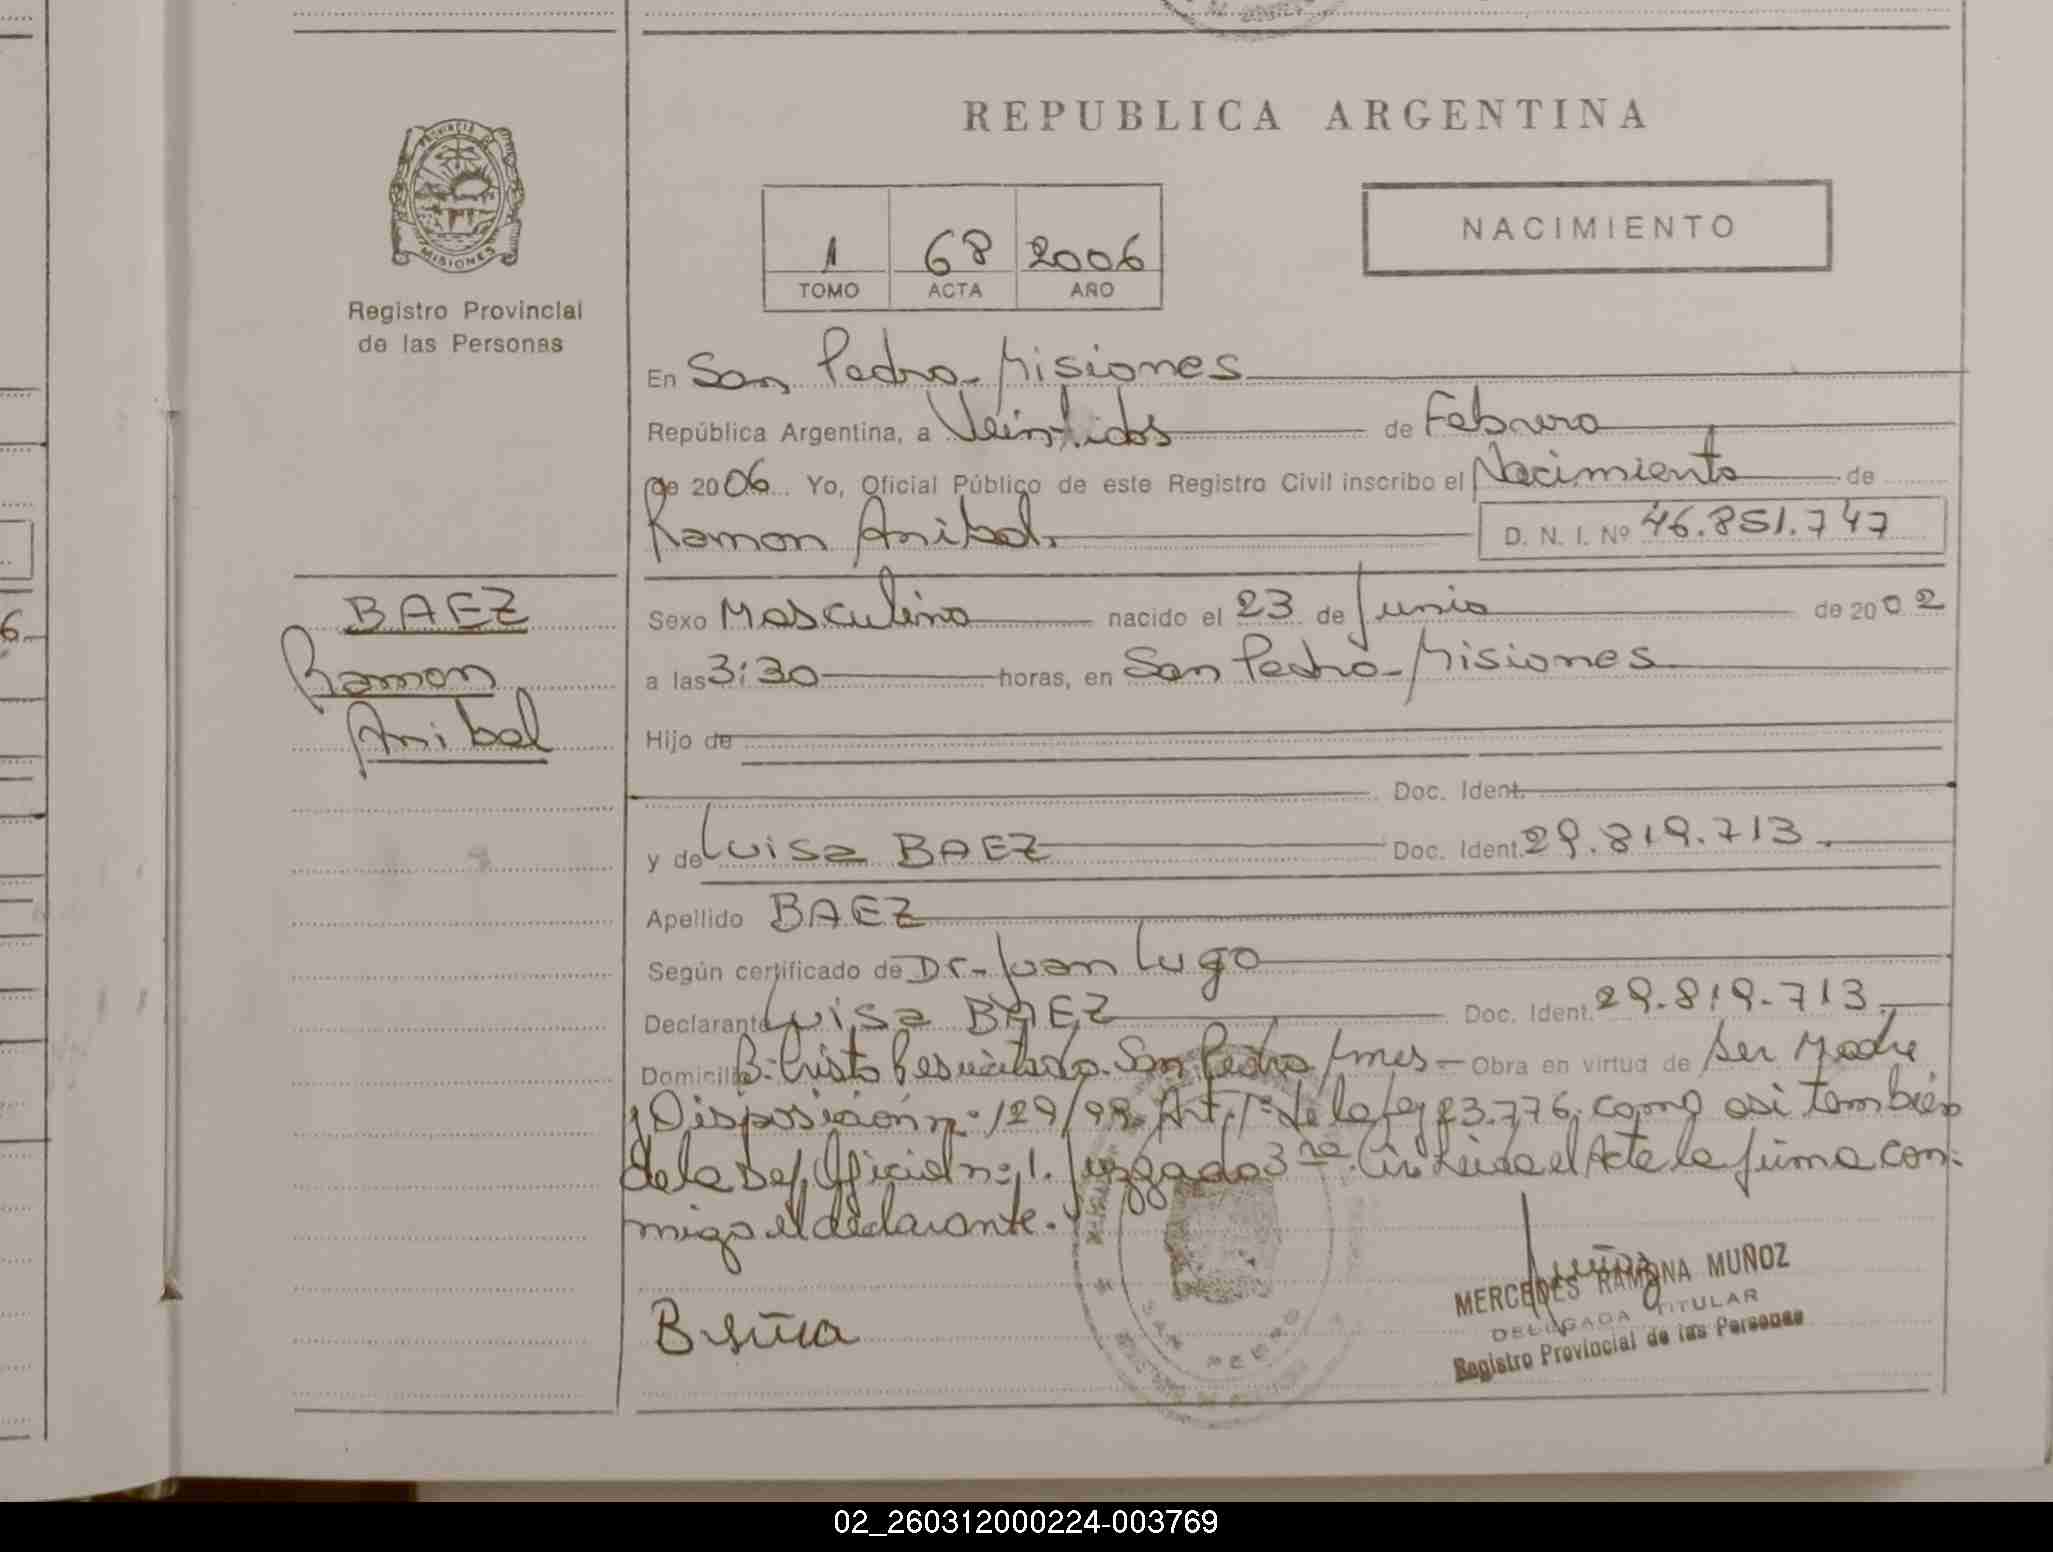 REPUBLICA ARGENTINA
PROVINCIA DE
MISIONES
Registro Provincial
de las Personas
1 68 2006
TOMO ACTA AÑO
NACIMIENTO
En San Pedro - Misiones
República Argentina, a Veintidos de Febrero
de 2006 Yo, Oficial Público de este Registro Civil inscribo el Nacimiento de
Ramon Anibal.
D. N. I. Nº 46.851.747
BAEZ
Ramon
Anibal
Sexo Masculino nacido el 23 de Junio de 2002
a las 3:30 horas, en San Pedro - Misiones
Hijo de
Doc. Ident.
y de Luisa BAEZ Doc. Ident. 29.819.713.
Apellido BAEZ
Según certificado de Dr. Juan Lugo
Declarante Luisa BAEZ Doc. Ident. 29.819.713.
Domicilio B: Cristo Resucitado. San Pedro Mnes - Obra en virtud de ser Madre
y Disposición nº 129/98. Art. 1º de la ley 23.776. como asi tambien
de la Def. Oficial nº 1. Juzgado 3ra. Cir. Leida el Acta la firma con-
migo el declarante.
MERCEDES RAMONA MUÑOZ
DELEGADA TITULAR
Registro Provincial de las Personas
SAN PEDRO
6
02_260312000224-003769